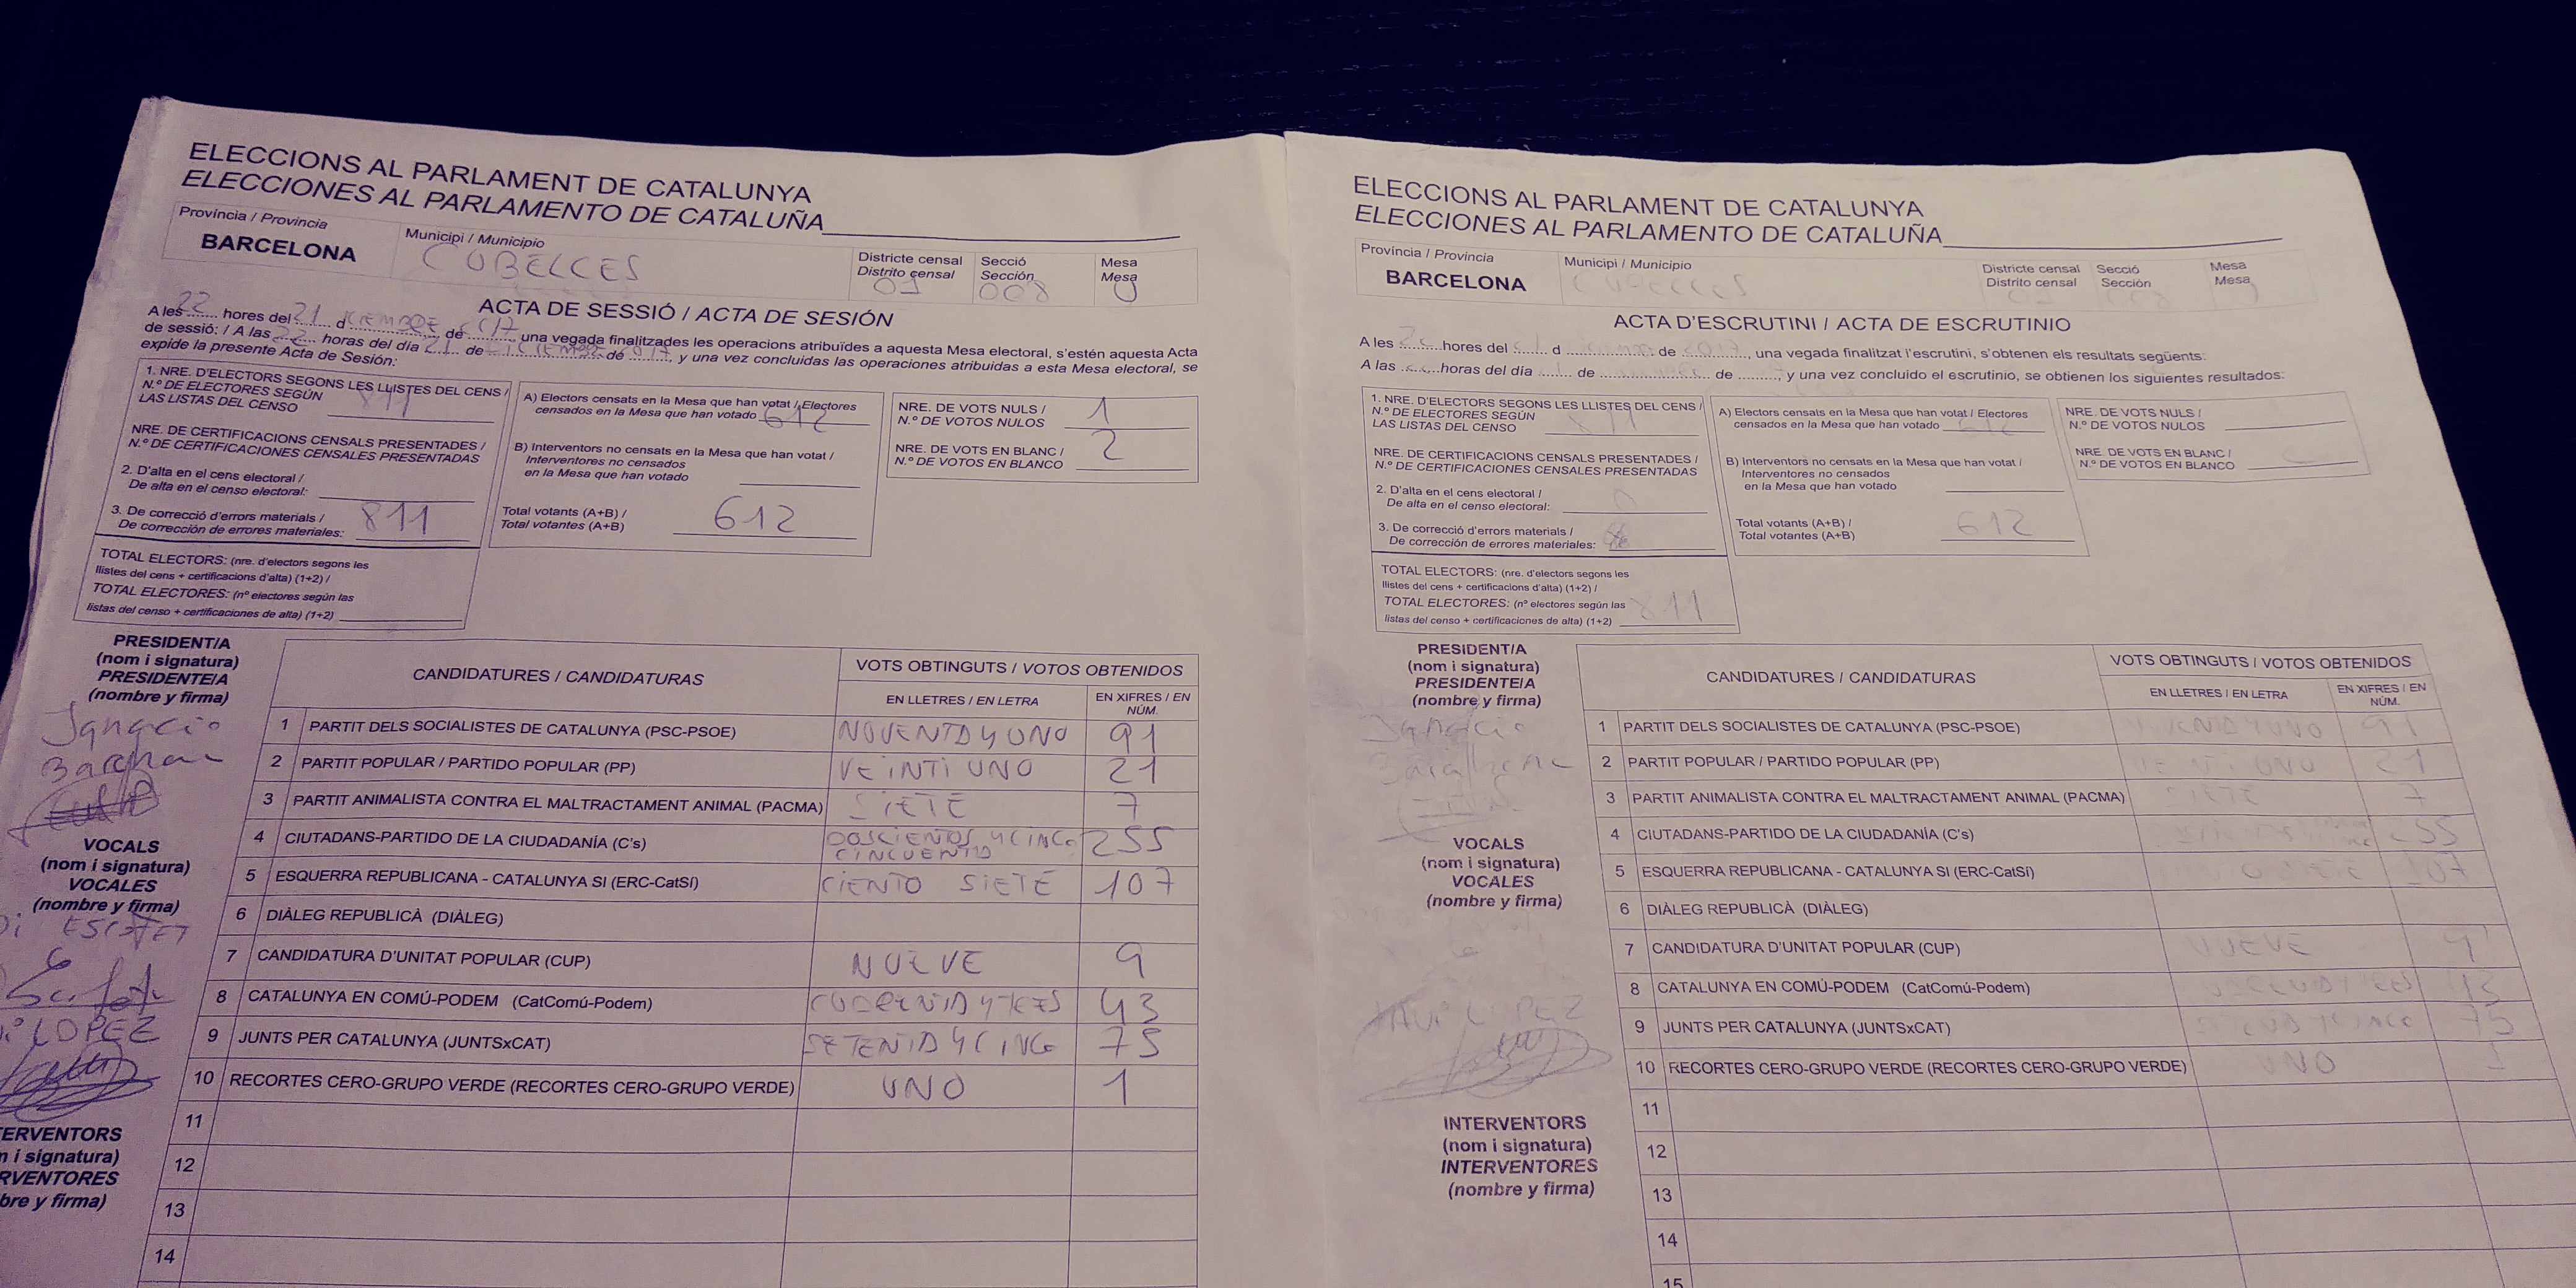 ELECCIONS AL PARLAMENT DE CATALUNYA
ELECCIONES AL PARLAMENTO DE CATALUÑA
Província / Provincia
BARCELONA
Municipi / Municipio
CUBELLES
Districte censal
Distrito censal
01
Secció
Sección
008
Mesa
Mesa
U
ACTA DE SESSIÓ / ACTA DE SESIÓN
A les 22 hores del 21 d DICIEMBRE de 2017 una vegada finalitzades les operacions atribuïdes a aquesta Mesa electoral, s'estén aquesta Acta
de sessió: / A las 22 horas del día 21 de DICIEMBRE de 2017 y una vez concluidas las operaciones atribuidas a esta Mesa electoral, se
expide la presente Acta de Sesión:
1. NRE. D'ELECTORS SEGONS LES LLISTES DEL CENS /
N.º DE ELECTORES SEGÚN
LAS LISTAS DEL CENSO 811
NRE. DE CERTIFICACIONS CENSALS PRESENTADES /
N.º DE CERTIFICACIONES CENSALES PRESENTADAS
2. D'alta en el cens electoral /
De alta en el censo electoral:
3. De correcció d'errors materials /
De corrección de errores materiales: 811
TOTAL ELECTORS: (nre. d'electors segons les
llistes del cens + certificacions d'alta) (1+2) /
TOTAL ELECTORES: (nº electores según las
listas del censo + certificaciones de alta) (1+2)
A) Electors censats en la Mesa que han votat / Electores
censados en la Mesa que han votado 612
B) Interventors no censats en la Mesa que han votat /
Interventores no censados
en la Mesa que han votado
Total votants (A+B) /
Total votantes (A+B) 612
NRE. DE VOTS NULS /
N.º DE VOTOS NULOS 1
NRE. DE VOTS EN BLANC /
N.º DE VOTOS EN BLANCO 2
PRESIDENT/A
(nom i signatura)
PRESIDENTE/A
(nombre y firma)
Ignacio
VOCALS
(nom i signatura)
VOCALES
(nombre y firma)
ESCOFET
LOPEZ
TERVENTORS
m i signatura)
RVENTORES
bre y firma)
CANDIDATURES / CANDIDATURAS
VOTS OBTINGUTS / VOTOS OBTENIDOS
EN LLETRES / EN LETRA
EN XIFRES / EN
NÚM.
1 PARTIT DELS SOCIALISTES DE CATALUNYA (PSC-PSOE) NOVENTA Y UNO 91
2 PARTIT POPULAR / PARTIDO POPULAR (PP) VEINTI UNO 21
3 PARTIT ANIMALISTA CONTRA EL MALTRACTAMENT ANIMAL (PACMA) SIETE 7
4 CIUTADANS-PARTIDO DE LA CIUDADANÍA (C's) DOSCIENTOS Y CINCO
CINCUENTA 255
5 ESQUERRA REPUBLICANA - CATALUNYA SI (ERC-CatSí) CIENTO SIETE 107
6 DIÀLEG REPUBLICÀ (DIÀLEG)
7 CANDIDATURA D'UNITAT POPULAR (CUP) NUEVE 9
8 CATALUNYA EN COMÚ-PODEM (CatComú-Podem) 43
9 JUNTS PER CATALUNYA (JUNTSxCAT) SETENTA Y CINCO 75
10 RECORTES CERO-GRUPO VERDE (RECORTES CERO-GRUPO VERDE) UNO 1
11
12
13
14
ELECCIONS AL PARLAMENT DE CATALUNYA
ELECCIONES AL PARLAMENTO DE CATALUÑA
Província / Provincia
BARCELONA
Municipi / Municipio
CUBELLES
Districte censal
Distrito censal
Secció
Sección
Mesa
Mesa
U
ACTA D'ESCRUTINI / ACTA DE ESCRUTINIO
A les 22 hores del d de 2017, una vegada finalitzat l'escrutini, s'obtenen els resultats següents:
A las horas del día de de , y una vez concluido el escrutinio, se obtienen los siguientes resultados:
1. NRE. D'ELECTORS SEGONS LES LLISTES DEL CENS /
N.º DE ELECTORES SEGÚN
LAS LISTAS DEL CENSO 811
NRE. DE CERTIFICACIONS CENSALS PRESENTADES /
N.º DE CERTIFICACIONES CENSALES PRESENTADAS
2. D'alta en el cens electoral /
De alta en el censo electoral:
3. De correcció d'errors materials /
De corrección de errores materiales:
TOTAL ELECTORS: (nre. d'electors segons les
llistes del cens + certificacions d'alta) (1+2) /
TOTAL ELECTORES: (nº electores según las
listas del censo + certificaciones de alta) (1+2) 811
A) Electors censats en la Mesa que han votat / Electores
censados en la Mesa que han votado 612
B) Interventors no censats en la Mesa que han votat /
Interventores no censados
en la Mesa que han votado
Total votants (A+B) /
Total votantes (A+B) 612
NRE. DE VOTS NULS /
N.º DE VOTOS NULOS
NRE. DE VOTS EN BLANC /
N.º DE VOTOS EN BLANCO
PRESIDENT/A
(nom i signatura)
PRESIDENTE/A
(nombre y firma)
Ignacio
VOCALS
(nom i signatura)
VOCALES
(nombre y firma)
LOPEZ
INTERVENTORS
(nom i signatura)
INTERVENTORES
(nombre y firma)
CANDIDATURES / CANDIDATURAS
VOTS OBTINGUTS / VOTOS OBTENIDOS
EN LLETRES / EN LETRA
EN XIFRES / EN
NÚM.
1 PARTIT DELS SOCIALISTES DE CATALUNYA (PSC-PSOE) NOVENTA Y UNO 91
2 PARTIT POPULAR / PARTIDO POPULAR (PP) VEINTI UNO 21
3 PARTIT ANIMALISTA CONTRA EL MALTRACTAMENT ANIMAL (PACMA) SIETE 7
4 CIUTADANS-PARTIDO DE LA CIUDADANÍA (C's) 255
5 ESQUERRA REPUBLICANA - CATALUNYA SI (ERC-CatSí) 107
6 DIÀLEG REPUBLICÀ (DIÀLEG)
7 CANDIDATURA D'UNITAT POPULAR (CUP) NUEVE 9
8 CATALUNYA EN COMÚ-PODEM (CatComú-Podem) 43
9 JUNTS PER CATALUNYA (JUNTSxCAT) 75
10 RECORTES CERO-GRUPO VERDE (RECORTES CERO-GRUPO VERDE) UNO 1
11
12
13
14
15